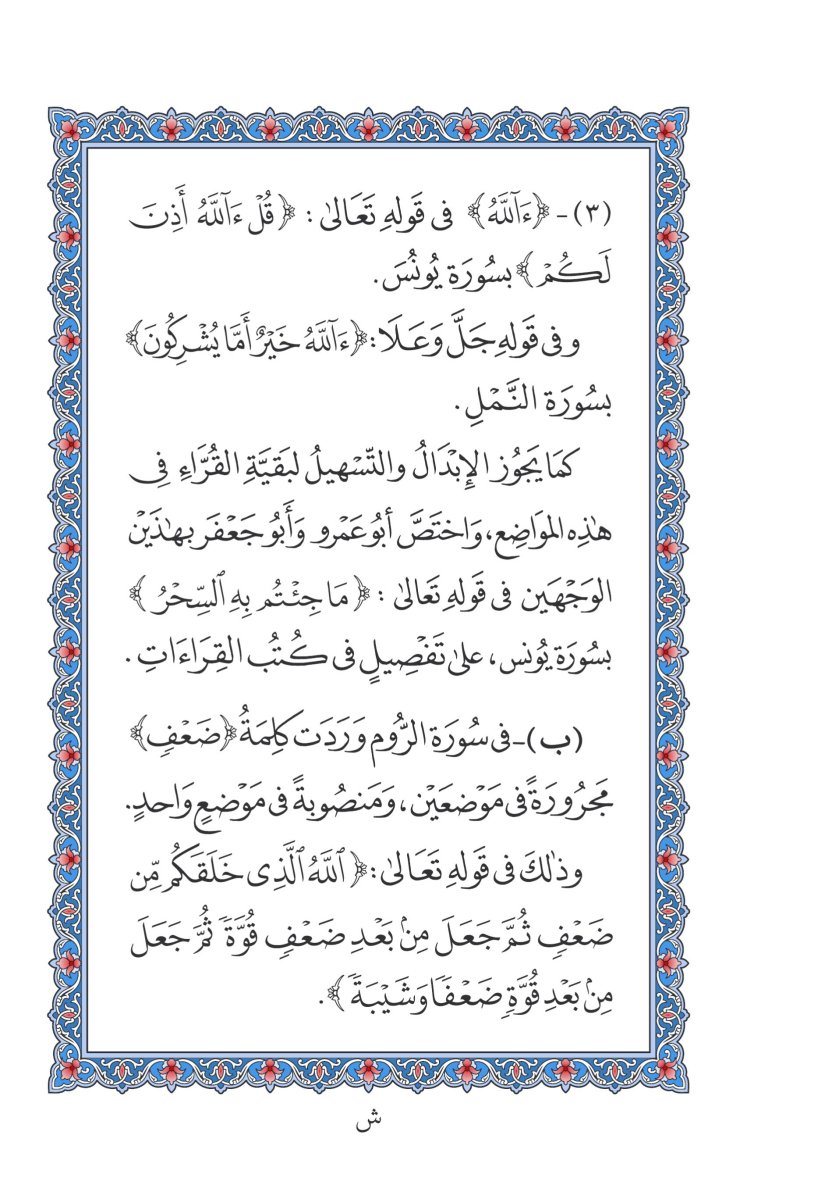 (٣) - ﴿ءَآللَّهُ﴾ فى قَولِهِ تَعَالىٰ : ﴿قُلۡ ءَآللَّهُ أَذِنَ
لَكُمۡ﴾ بسُورَة يُونُسَ.
وفى قَولِهِ جَلَّ وَعَـلَا : ﴿ءَآللَّهُ خَيۡرٌ أَمَّا يُشۡرِكُونَ﴾
بسُورَة النَّـمْلِ .
كمَا يَجُوُز الإِبْدَالُ والتّسْهيلُ لبَقيَّةِ القُرَّاءِ فِى
هٰذِه الموَاضِع، وَاختَصَّ أبُو عَمْرٍو وَأَبُو جَعْفَر بهٰذَيْن
الوَجْهَين فى قَولِهِ تَعَالىٰ : ﴿مَا جِئۡتُم بِهِ ٱلسِّحۡرُ﴾
بسُورَة يُونس، علىٰ تَفْصِيلٍ فى كتُبُ القِرَاءَاتِ .
(ب) - فى سُورَة الرُّوم وَرَدَت كلِمَةُ ﴿ضَعۡفٖ﴾
مَجرُورَةً فى مَوْضعَيْن، وَمَنصُوبةً فى مَوْضعٍ وَاحدٍ.
وذٰلكَ فى قَولِهِ تَعَالىٰ : ﴿ٱللَّهُ ٱلَّذِى خَلَقَكُم مِّن
ضَعۡفٖ ثُمَّ جَعَلَ مِنۢ بَعۡدِ ضَعۡفٖ قُوَّةٗ ثُمَّ جَعَلَ
مِنۢ بَعۡدِ قُوَّةٖ ضَعۡفٗا وَشَيۡبَةٗ﴾ .
ش